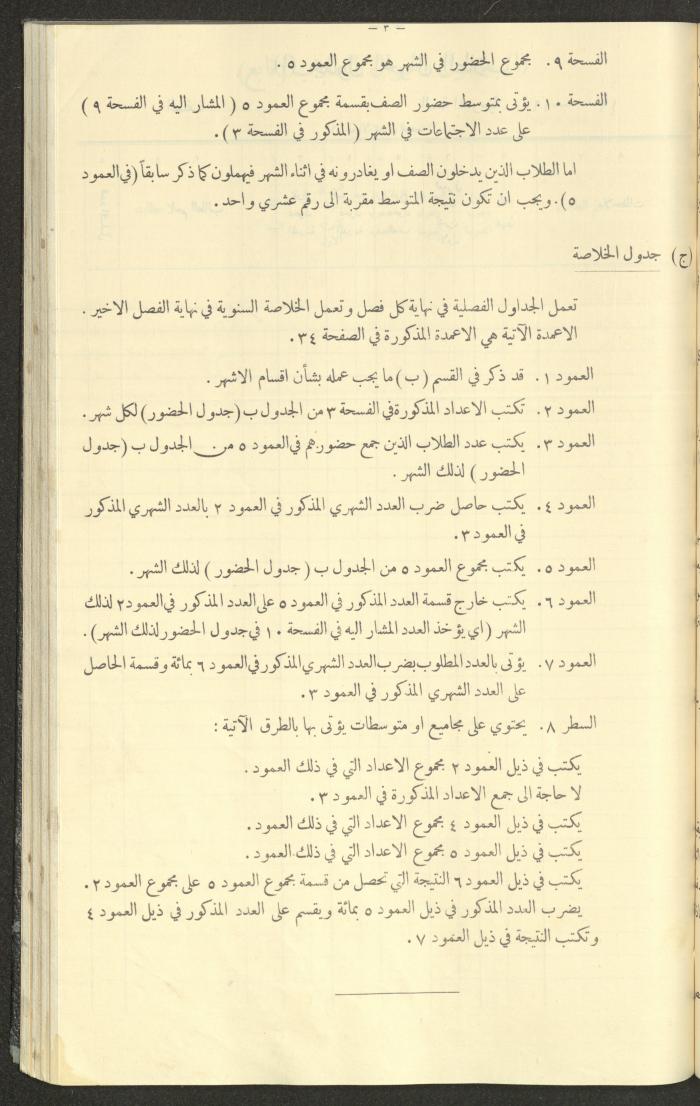 — ٣ —
الفسحة ٩. مجموع الحضور في الشهر هو مجموع العمود ٥ .
الفسحة ١٠. يؤتى بمتوسط حضور الصف بقسمة مجموع العمود ٥ ( المشار اليه في الفسحة ٩ )
على عدد الاجتماعات في الشهر ( المذكور في الفسحة ٣ ) .
اما الطلاب الذين يدخلون الصف او يغادرونه في اثناء الشهر فيهملون كما ذكر سابقاً (في العمود
٥). ويجب ان تكون نتيجة المتوسط مقربة الى رقم عشري واحد .
(ج) جدول الخلاصة
تعمل الجداول الفصلية في نهاية كل فصل وتعمل الخلاصة السنوية في نهاية الفصل الاخير .
الاعمدة الآتية هي الاعمدة المذكورة في الصفحة ٣٤ .
العمود ١. قد ذكر في القسم ( ب ) ما يجب عمله بشأن اقسام الاشهر .
العمود ٢. تكتب الاعداد المذكورة في الفسحة ٣ من الجدول ب (جدول الحضور) لكل شهر .
العمود ٣. يكتب عدد الطلاب الذين جمع حضورهم في العمود ٥ من الجدول ب (جدول
الحضور ) لذلك الشهر .
العمود ٤. يكتب حاصل ضرب العدد الشهري المذكور في العمود ٢ بالعدد الشهري المذكور
في العمود ٣ .
العمود ٥. يكتب مجموع العمود ٥ من الجدول ب ( جدول الحضور ) لذلك الشهر .
العمود ٦. يكتب خارج قسمة العدد المذكور في العمود ٥ على العدد المذكور في العمود ٢ لذلك
الشهر (اي يؤخذ العدد المشار اليه في الفسحة ١٠ في جدول الحضور لذلك الشهر) .
العمود ٧. يؤتى بالعدد المطلوب بضرب العدد الشهري المذكور في العمود ٦ بمائة وقسمة الحاصل
على العدد الشهري المذكور في العمود ٣ .
السطر ٨. يحتوي على مجاميع او متوسطات يؤتى بها بالطرق الآتية :
يكتب في ذيل العمود ٢ مجموع الاعداد التي في ذلك العمود .
لا حاجة الى جمع الاعداد المذكورة في العمود ٣ .
يكتب في ذيل العمود ٤ مجموع الاعداد التي في ذلك العمود .
يكتب في ذيل العمود ٥ مجموع الاعداد التي في ذلك العمود .
يكتب في ذيل العمود ٦ النتيجة التي تحصل من قسمة مجموع العمود ٥ على مجموع العمود ٢ .
يضرب العدد المذكور في ذيل العمود ٥ بمائة ويقسم على العدد المذكور في ذيل العمود ٤
وتكتب النتيجة في ذيل العمود ٧ .